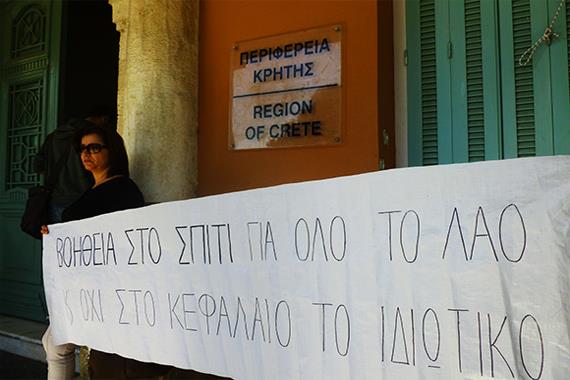 ΠΕΡΙΦΕΡΕΙΑ
ΚΡΗΤΗΣ
REGION
OF CRETE
ΒΟΗΘΕΙΑ ΣΤΟ ΣΠΙΤΙ ΓΙΑ ΟΛΟ ΤΟ ΛΑΟ
ΟΧΙ ΣΤΟ ΚΕΦΑΛΑΙΟ ΤΟ ΙΔΙΩΤΙΚΟ